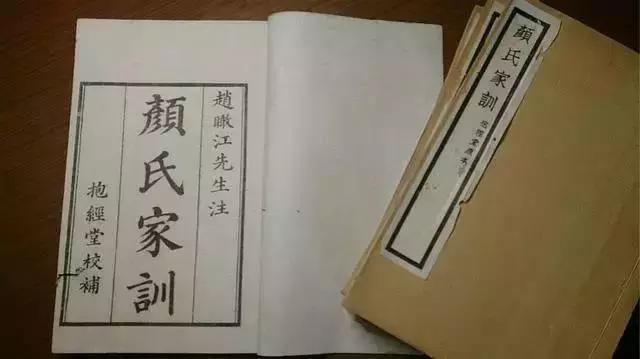 趙瞰江先生注
顏氏家訓
抱經堂校補
顏氏家訓
抱經堂